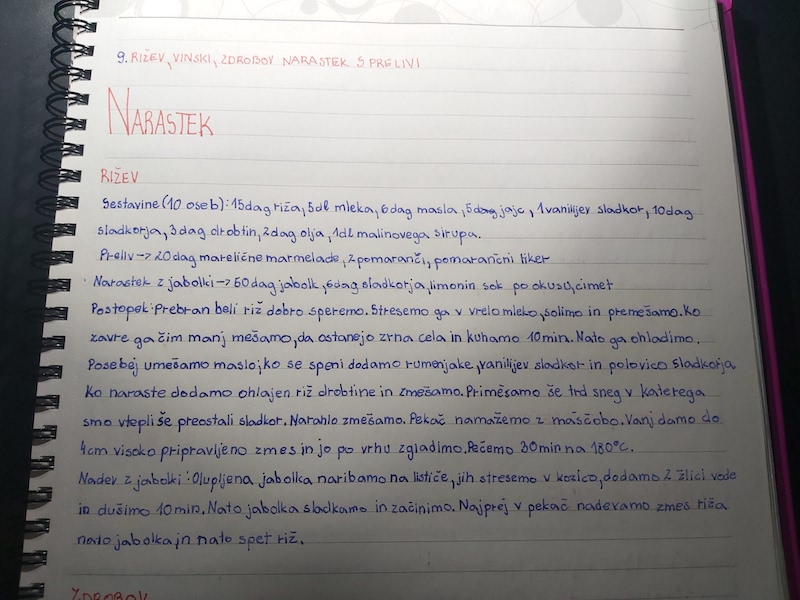 9. RIŽEV, VINSKI, ZDROBOV NARASTEK S PRELIVI
NARASTEK
RIŽEV
Sestavine (10 oseb): 15dag riža, 5dl mleka, 6dag masla, 5 jajc, 1 vanilijev sladkor, 10dag
sladkorja, 3dag drobtin, 2dag olja, 1dl malinovega sirupa.
Preliv -> 20dag marelične marmelade, 2 pomaranči, pomarančni liker
Narastek z jabolki -> 50dag jabolk, 6dag sladkorja, limonin sok po okusu, cimet
Postopek: Prebran beli riž dobro speremo. Stresemo ga v vrelo mleko, solimo in premešamo. Ko
zavre ga čim manj mešamo, da ostanejo zrna cela in kuhamo 10min. Nato ga ohladimo.
Posebej umešamo maslo, ko se speni dodamo rumenjake, vanilijev sladkor in polovico sladkorja
Ko naraste dodamo ohlajen riž drobtine in zmešamo. Primešamo še trd sneg v katerega
smo vtepli še preostali sladkor. Narahlo zmešamo. Pekač namažemo z maščobo. Vanj damo do
4cm visoko pripravljeno zmes in jo po vrhu zgladimo. Pečemo 30min na 180°C.
Nadev z jabolki: Olupljena jabolka naribamo na lističe, jih stresemo v kozico, dodamo 2 žlici vode
in dušimo 10min. Nato jabolka sladkamo in začinimo. Najprej v pekač nadevamo zmes riža
nato jabolka, in nato spet riž.
ZDROBOV